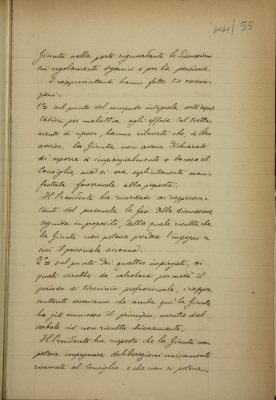 55
Giunta nella parte riguardante le discussioni
sui regolamenti organici e per la pensione.
I rappresentanti hanno fatto tre osserva-
zioni:
1ª sul punto del computo integrale dell'aspet-
tativa per malattia agli effetti del tratta-
mento di riposo, hanno rilevato che, a loro
avviso, la Giunta non aveva dichiarato
di esporre imparzialmente la cosa al
Consiglio, ma si era esplicitamente mani-
festata favorevole alla proposta.
Il Presidente ha ricordato ai rappresen-
tanti del personale le fasi della discussione
seguita in proposito, dalla quale risulta che
la Giunta non poteva prendere l'impegno a
cui il personale accenna.
2ª sul punto dei quattro impiegati, ai
quali sarebbe da valutarsi per metà il
periodo di esercizio professionale, i rappre-
sentanti osservano che anche qui la Giunta
ha già ammesso il principio, mentre dal
verbale ciò non risulta chiaramente.
Il Presidente ha risposto che la Giunta non
poteva impegnare deliberazioni unicamente
riservate al Consiglio e che non si poteva